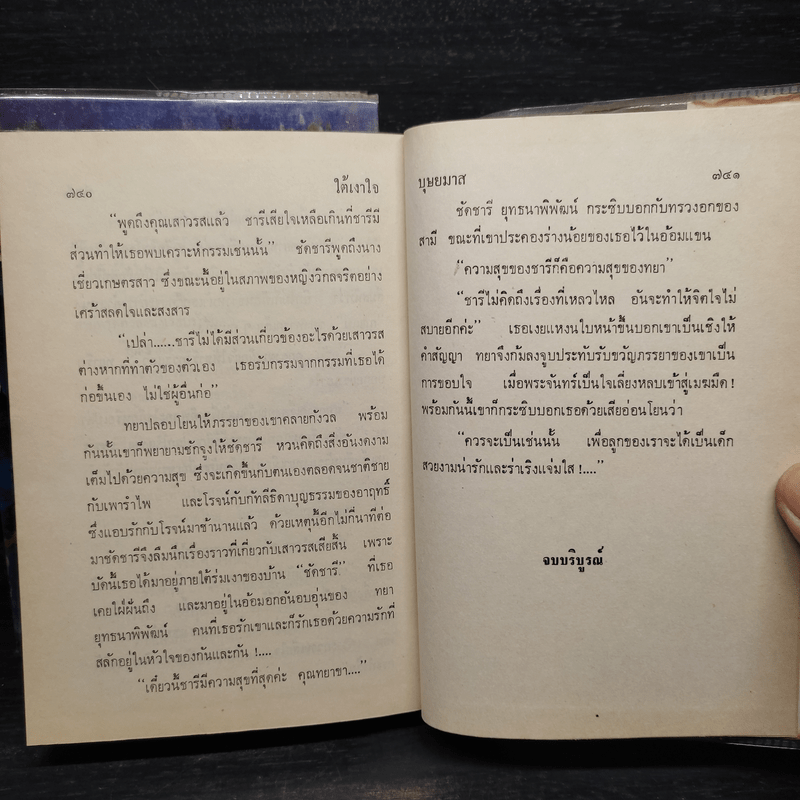 ๗๔๐ ใต้เงาใจ
“พูดถึงคุณเสาวรสแล้ว ชารีเสียใจเหลือเกินที่ชารีมี
ส่วนทำให้เธอพบเคราะห์กรรมเช่นนั้น” ชัดชารีพูดถึงนาง
เชี่ยวเกษตรสาว ซึ่งขณะนี้อยู่ในสภาพของหญิงวิกลจริตอย่าง
เศร้าสลดใจและสงสาร
“เปล่า......ชารีไม่ได้มีส่วนเกี่ยวข้องอะไรด้วยเสาวรส
ต่างหากที่ทำตัวของตัวเอง เธอรับกรรมจากกรรมที่เธอได้
ก่อขึ้นเอง ไม่ใช่ผู้อื่นก่อ”
ทยาปลอบโยนให้ภรรยาของเขาคลายกังวล พร้อม
กันนั้นเขาก็พยายามชักจูงให้ชัดชารี หวนคิดถึงสิ่งอันงดงาม
เต็มไปด้วยความสุข ซึ่งจะเกิดขึ้นกับตนเองตลอดจนชาติชาย
กับเพารำไพ และโรจน์กับกัทลีธิดาบุญธรรมของอาฤทธิ์
ซึ่งแอบรักกับโรจน์มาช้านานแล้ว ด้วยเหตุนี้อีกไม่กี่นาทีต่อ
มาชัดชารีจึงลืมนึกเรื่องราวที่เกี่ยวกับเสาวรสเสียสิ้น เพราะ
บัดนี้เธอได้มาอยู่ภายใต้ร่มเงาของบ้าน “ชัดชารี” ที่เธอ
เคยใฝ่ฝันถึง และมาอยู่ในอ้อมอกอันอบอุ่นของ ทยา
ยุทธนาพิพัฒน์ คนที่เธอรักเขาและก็รักเธอด้วยความรักที่
สลักอยู่ในหัวใจของกันและกัน !....
“เดี๋ยวนี้ชารีมีความสุขที่สุดค่ะ คุณทยาขา....”
บุษยมาส ๗๔๑
ชัดชารี ยุทธนาพิพัฒน์ กระซิบบอกกับทรวงอกของ
สามี ขณะที่เขาประคองร่างน้อยของเธอไว้ในอ้อมแขน
“ความสุขของชารีก็คือความสุขของทยา”
“ชารีไม่คิดถึงเรื่องที่เหลวไหล อันจะทำให้จิตใจไม่
สบายอีกค่ะ” เธอเงยแหงนใบหน้าขึ้นบอกเขาเป็นเชิงให้
คำสัญญา ทยาจึงก้มลงจูบประทับรับขวัญภรรยาของเขาเป็น
การขอบใจ เมื่อพระจันทร์เป็นใจเลี่ยงหลบเข้าสู่เมฆมืด !
พร้อมกันนี้เขาก็กระซิบบอกเธอด้วยเสียอ่อนโยนว่า
“ควรจะเป็นเช่นนั้น เพื่อลูกของเราจะได้เป็นเด็ก
สวยงามน่ารักและร่าเริงแจ่มใส !....”
จบบริบูรณ์